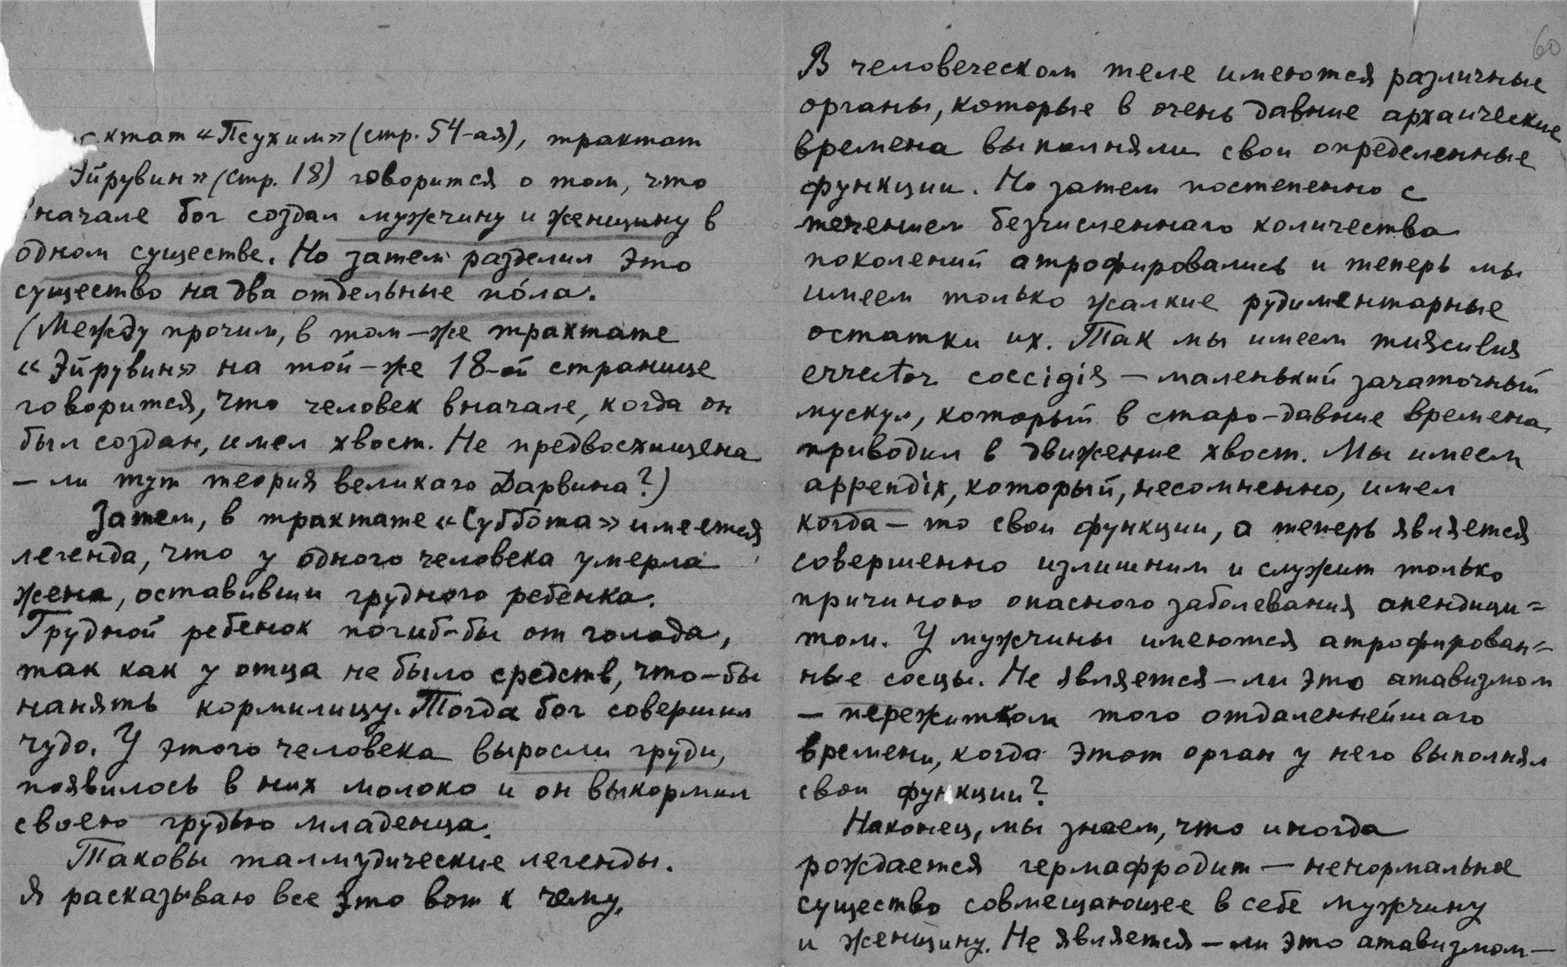 ктат «Псухим» (стр. 54-ая), трактат
Эйрувин» (стр. 18) говорится о том, что
начале бог создал мужчину и женщину в
одном существе. Но затем разделил это
существо на два отдельные по́ла.
(Между прочим, в том-же трактате
«Эйрувин» на той-же 18-ой странице
говорится, что человек вначале, когда он
был создан, имел хвост. Не предвосхищена
— ли тут теория великаго Дарвина?)
Затем, в трактате «Суббота» имеется
легенда, что у одного человека умерла
жена, оставивши грудного ребенка.
Грудной ребенок погиб-бы от голода,
так как у отца не было средств, что-бы
нанять кормилицу. Тогда бог совершил
чудо. У этого человека выросли груди,
появилось в них молоко и он выкормил
своею грудью младенца.
Таковы талмудические легенды.
Я расказываю все это вот к чему.
60
В человеческом теле имеются различные
органы, которые в очень давние архаические
времена выполняли свои определенные
функции. Но затем постепенно с
течением безчисленнаго количества
поколений атрофировались и теперь мы
имеем только жалкие рудиментарные
остатки их. Так мы имеем
errector coccigis — маленький зачаточный
мускул, который в старо-давние времена
приводил в движение хвост. Мы имеем
appendix, который, несомненно, имел
когда-то свои функции, а теперь является
совершенно излишним и служит только
причиною опасного заболевания апендици=
том. У мужчины имеются атрофирован=
ные сосцы. Не является-ли это атавизмом
— пережитком того отдаленнейшаго
времени, когда этот орган у него выполнял
свои функции?
Наконец, мы знаем, что иногда
рождается гермафродит — ненормальное
существо совмещающее в себе мужчину
и женщину. Не является-ли это атавизмом —